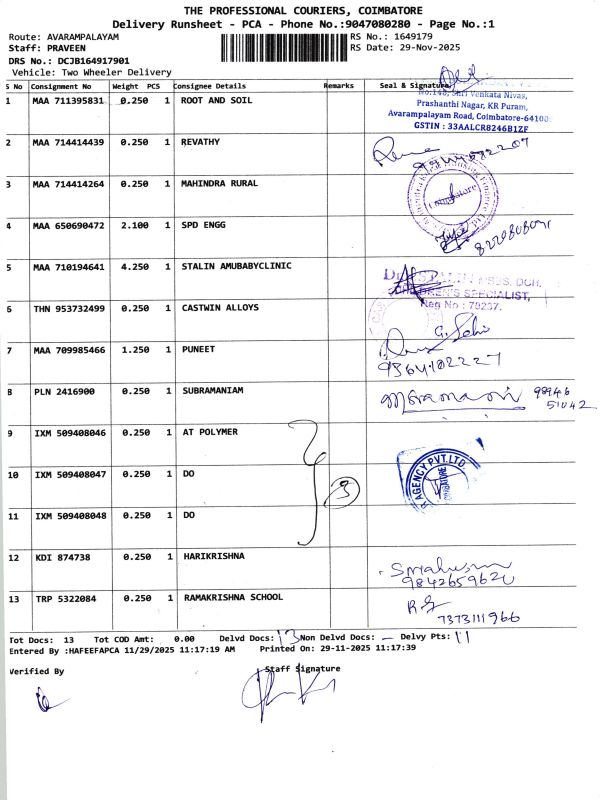 THE PROFESSIONAL COURIERS, COIMBATORE
Delivery Runsheet - PCA - Phone No.:9047080280 - Page No.:1
Route: AVARAMPALAYAM RS No.: 1649179
Staff: PRAVEEN RS Date: 29-Nov-2025
DRS No.: DCJB164917901
Vehicle: Two Wheeler Delivery
S No Consignment No Weight PCS Consignee Details Remarks Seal & Signature
1 MAA 711395831 0.250 1 ROOT AND SOIL
No.148, Shri Venkata Nivas,
Prashanthi Nagar, KR Puram,
Avarampalayam Road, Coimbatore-64100
GSTIN : 33AALCR8246B1ZF
2 MAA 714414439 0.250 1 REVATHY
3 MAA 714414264 0.250 1 MAHINDRA RURAL
Coimbatore
4 MAA 650690472 2.100 1 SPD ENGG
5 MAA 710194641 4.250 1 STALIN AMUBABYCLINIC
MBBS, DCH,
CHILDREN'S SPECIALIST,
Reg No : 79237.
6 THN 953732499 0.250 1 CASTWIN ALLOYS
7 MAA 709985466 1.250 1 PUNEET
9364102227
8 PLN 2416900 0.250 1 SUBRAMANIAM
98946
51042
9 IXM 509408046 0.250 1 AT POLYMER
AGENCY PVT.LTD.
10 IXM 509408047 0.250 1 DO
3
11 IXM 509408048 0.250 1 DO
12 KDI 874738 0.250 1 HARIKRISHNA
9842659620
13 TRP 5322084 0.250 1 RAMAKRISHNA SCHOOL
7373111966
Tot Docs: 13 Tot COD Amt: 0.00 Delvd Docs: 13 Non Delvd Docs: — Delvy Pts: 11
Entered By :HAFEEFAPCA 11/29/2025 11:17:19 AM Printed On: 29-11-2025 11:17:39
Verified By Staff Signature